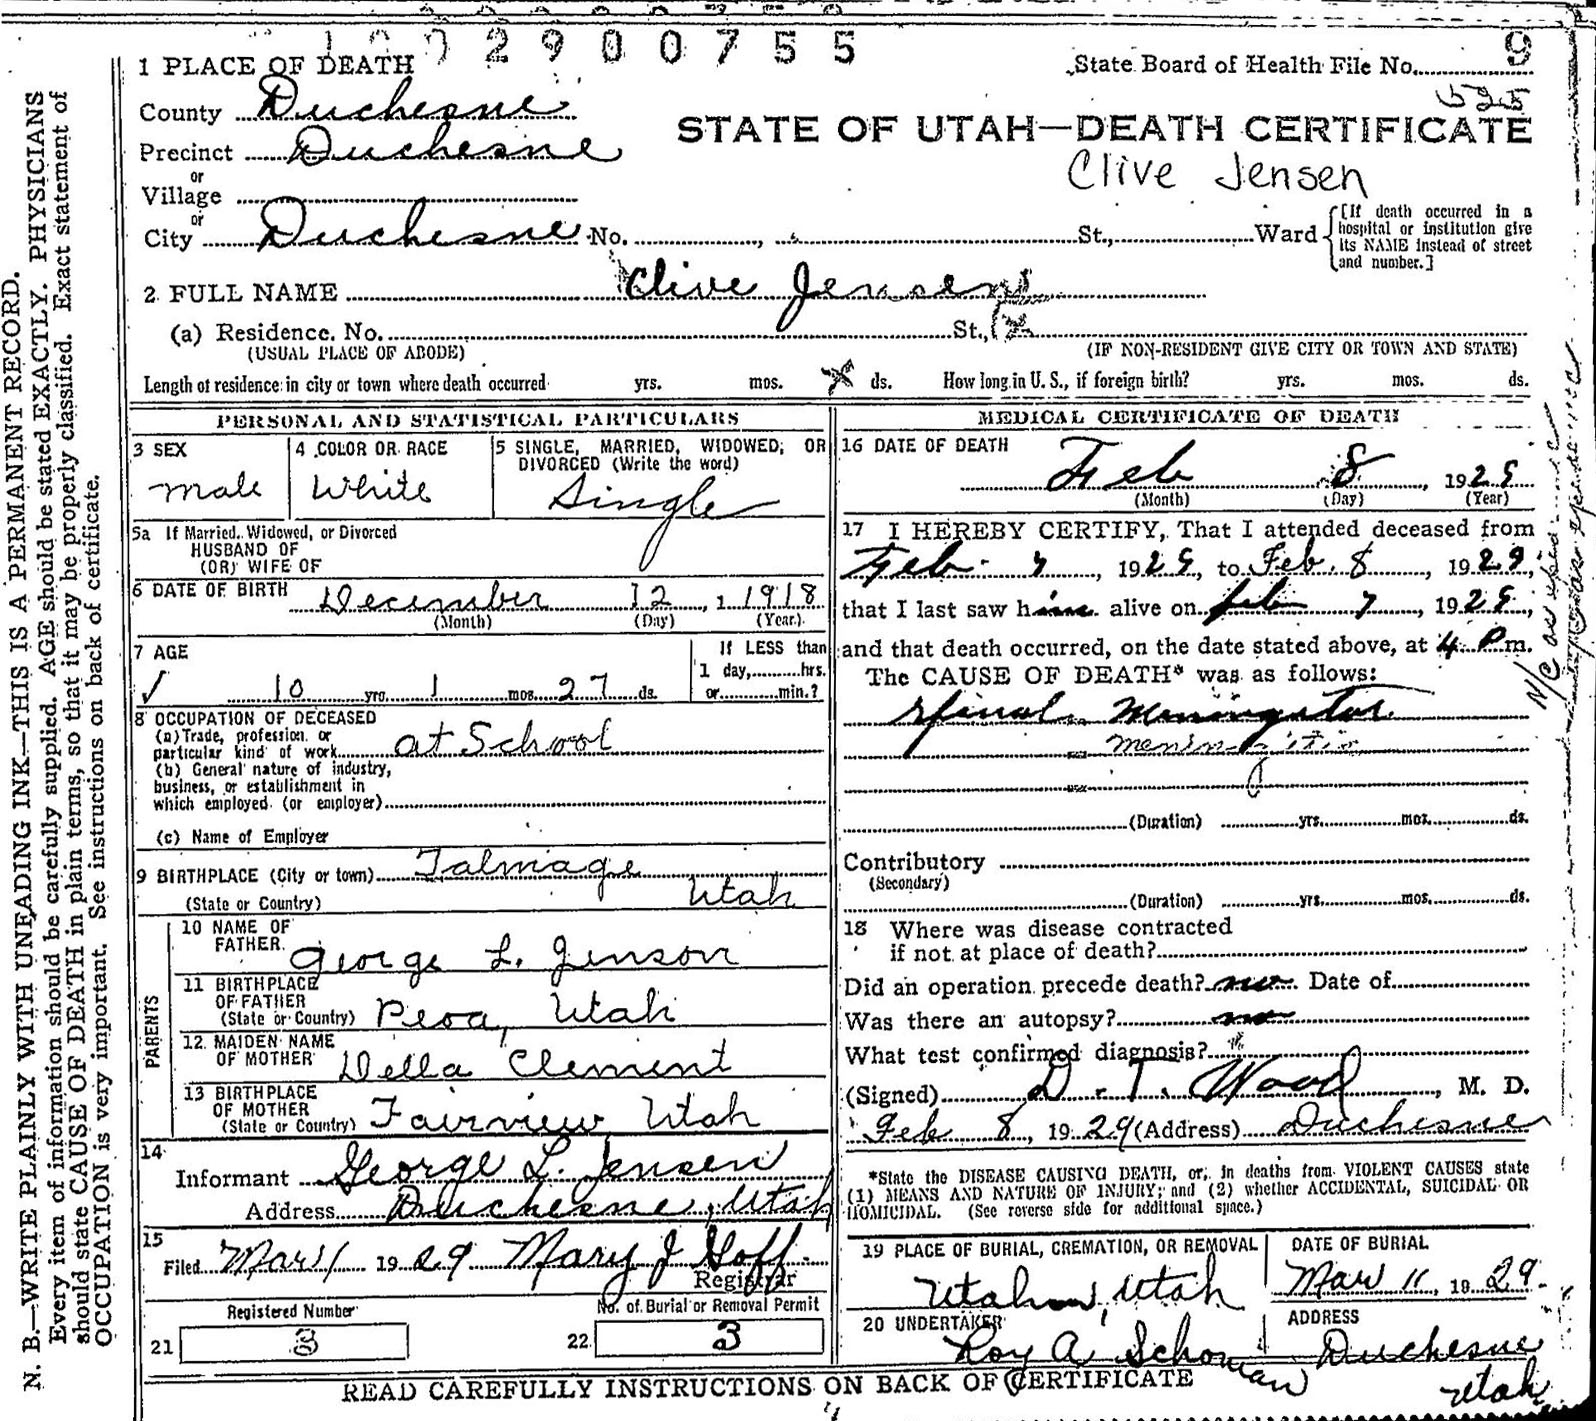 1 0 0 2 9 0 0 7 5 5
1 PLACE OF DEATH
State Board of Health File No. 9
525
County Duchesne
STATE OF UTAH—DEATH CERTIFICATE
Precinct Duchesne
Clive Jensen
or
Village
or
City Duchesne No. , St., Ward
[If death occurred in a hospital or institution give its NAME instead of street and number.]
2 FULL NAME Clive Jensen
(a) Residence. No. St.,
(USUAL PLACE OF ABODE) (IF NON-RESIDENT GIVE CITY OR TOWN AND STATE)
Length of residence in city or town where death occurred yrs. mos. ds. How long in U. S., if foreign birth? yrs. mos. ds.
PERSONAL AND STATISTICAL PARTICULARS
3 SEX
male
4 COLOR OR RACE
White
5 SINGLE, MARRIED, WIDOWED, OR
DIVORCED (Write the word)
Single
5a If Married, Widowed, or Divorced
HUSBAND OF
(OR) WIFE OF
6 DATE OF BIRTH December 12, 1 1918
(Month) (Day) (Year)
7 AGE
10 yrs. 1 mos. 27 ds.
If LESS than
1 day, hrs.
or min.?
8 OCCUPATION OF DECEASED
(a) Trade, profession, or
particular kind of work at School
(b) General nature of industry,
business, or establishment in
which employed (or employer)
(c) Name of Employer
9 BIRTHPLACE (City or town) Talmage
(State or Country) Utah
PARENTS
10 NAME OF
FATHER George L. Jenson
11 BIRTHPLACE
OF FATHER
(State or Country) Peoa, Utah
12 MAIDEN NAME
OF MOTHER Della Clement
13 BIRTHPLACE
OF MOTHER
(State or Country) Fairview Utah
14
Informant George L. Jensen
Address Duchesne, Utah
15
Filed Mar 11 1929 Mary J Goff
Registrar
Registered Number
No. of Burial or Removal Permit
21 3
22 3
MEDICAL CERTIFICATE OF DEATH
16 DATE OF DEATH
Feb 8, 1929
(Month) (Day) (Year)
17 I HEREBY CERTIFY, That I attended deceased from
Feb. 7, 1929, to Feb. 8, 1929,
that I last saw him alive on Feb 7, 1929,
and that death occurred, on the date stated above, at 4 P m.
The CAUSE OF DEATH* was as follows:
Spinal Meningitus
meningitis
(Duration) yrs. mos. ds.
Contributory
(Secondary)
(Duration) yrs. mos. ds.
18 Where was disease contracted
if not at place of death?
Did an operation precede death? no Date of
Was there an autopsy? no
What test confirmed diagnosis?
(Signed) D. T. Wood, M. D.
Feb 8, 1929 (Address) Duchesne
*State the DISEASE CAUSING DEATH, or, in deaths from VIOLENT CAUSES state
(1) MEANS AND NATURE OF INJURY; and (2) whether ACCIDENTAL, SUICIDAL OR
HOMICIDAL. (See reverse side for additional space.)
19 PLACE OF BURIAL, CREMATION, OR REMOVAL
Utahn, Utah
DATE OF BURIAL
Mar 11, 1929.
20 UNDERTAKER
Roy A Schonian
ADDRESS
Duchesne
Utah
READ CAREFULLY INSTRUCTIONS ON BACK OF CERTIFICATE
N. B.—WRITE PLAINLY WITH UNFADING INK—THIS IS A PERMANENT RECORD.
Every item of information should be carefully supplied. AGE should be stated EXACTLY. PHYSICIANS
should state CAUSE OF DEATH in plain terms, so that it may be properly classified. Exact statement of
OCCUPATION is very important. See instructions on back of certificate.